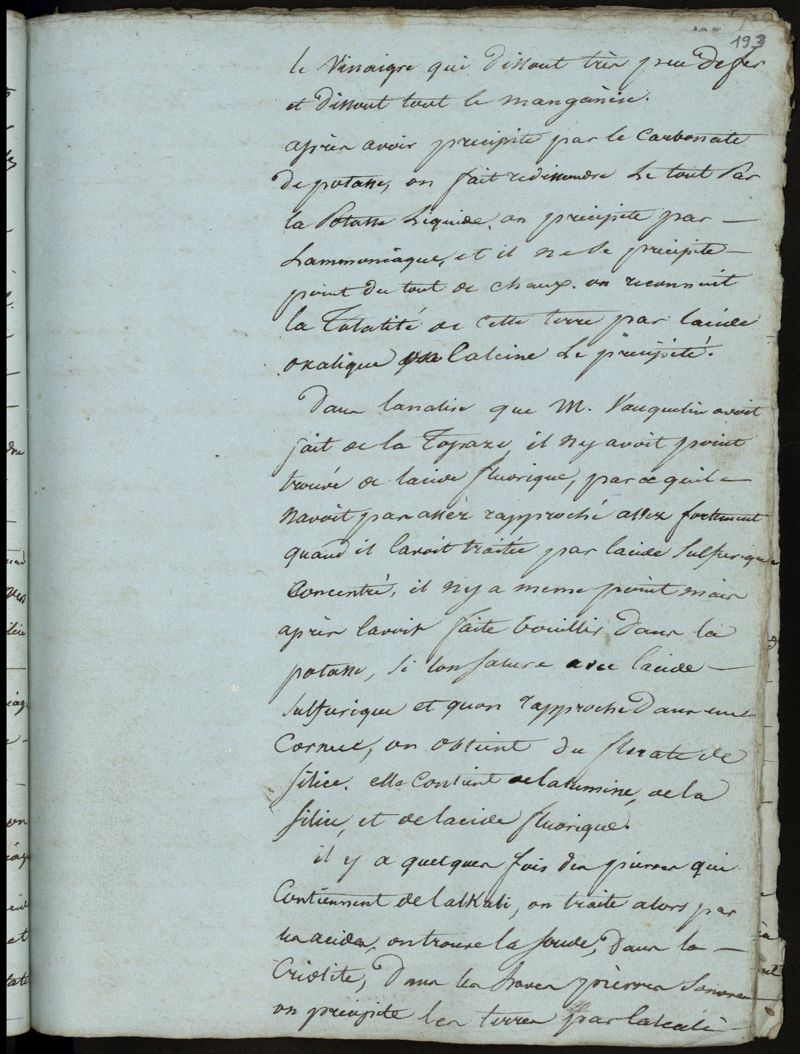 193
le Vinaigre qui dissout très peu de fer
et dissout tout le manganèse.
après avoir precipité par le Carbonate
de potasse, on fait redissoudre le tout Par
la Potasse Liquide. on precipite par —
Lammoniaque, et il ne se precipite —
point du tout de chaux. on reconnoit
la Totalité de cette terre par lacide
oxalique Calcine le precipité.
Dans lanalise que M. Vauquelin avoit
fait de la Topaze, il ny avoit point
trouvé de lacide fluorique, parce quil —
navoit pas assez rapproché assez fortement
quand il lavoit traitée par lacide Sulfurique
Concentré, il ny a meme point mais
après lavoir faite bouillir Dans la
potasse, si lon sature avec lacide —
Sulfurique et quon rapproche Dans une
Cornue, on obtient du fluate de
silice. elle Contient de lalumine, de la
silice, et de lacide fluorique.
il y a quelques fois des pierres qui
Contiennent de lalkali, on traite alors par
les acides, on trouve la soude, Dans la —
Criolite, Dans les laves pierres Sonores
on precipite les terres par lalcali